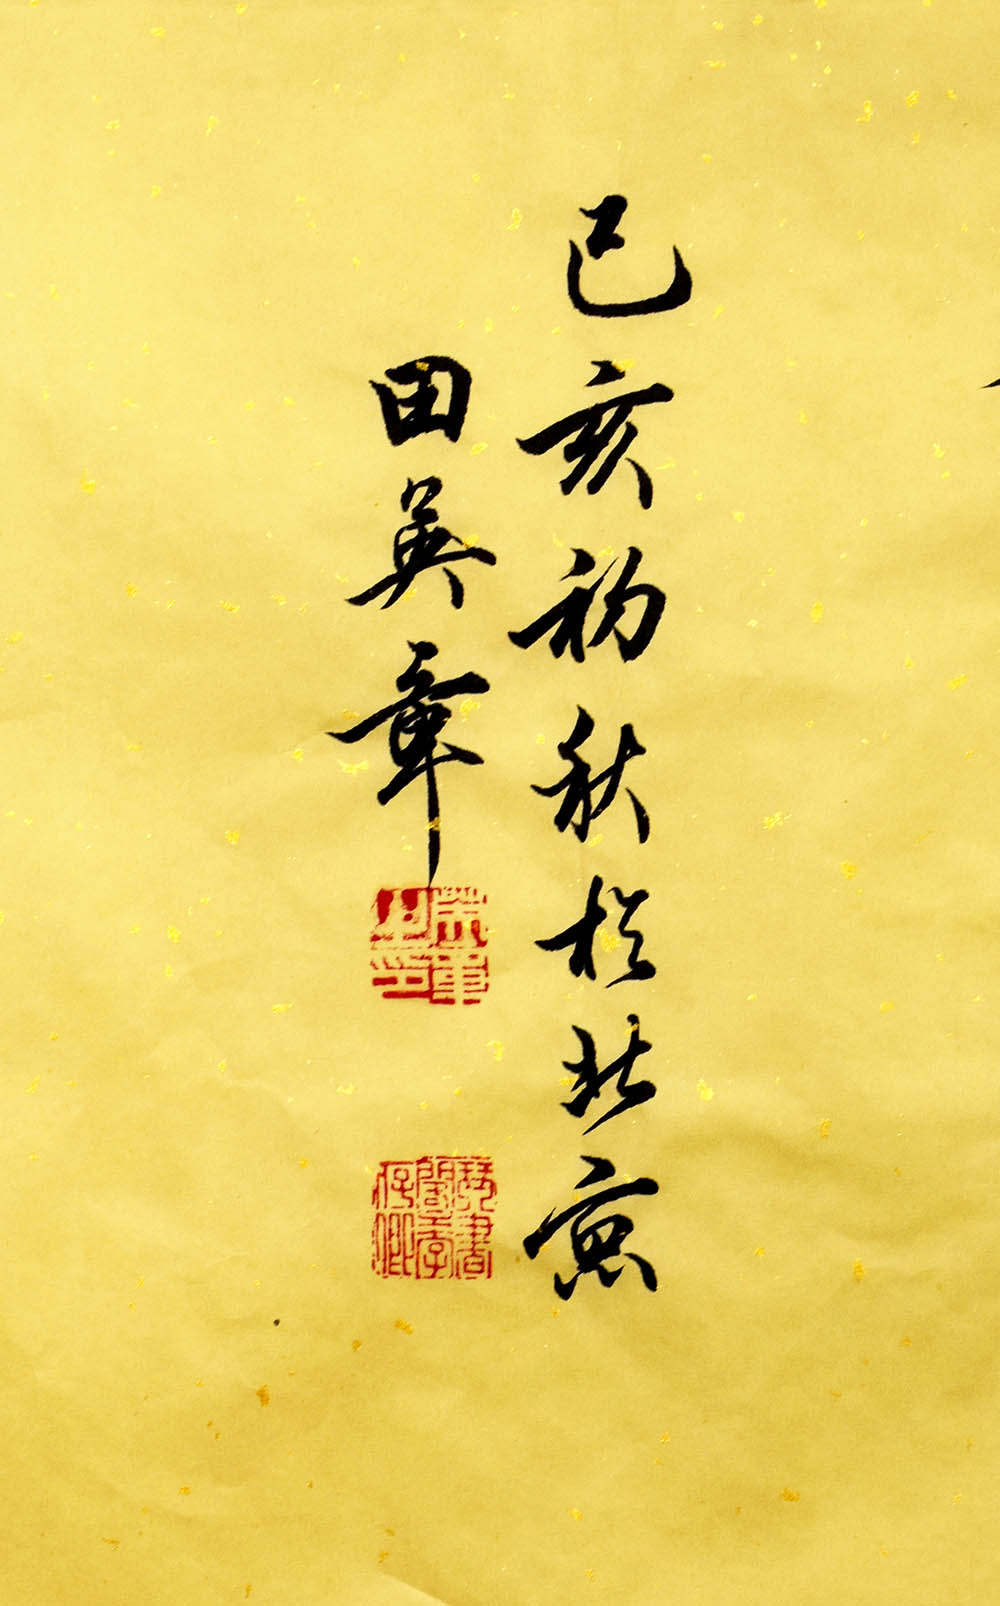 己亥初秋於北京
田英章